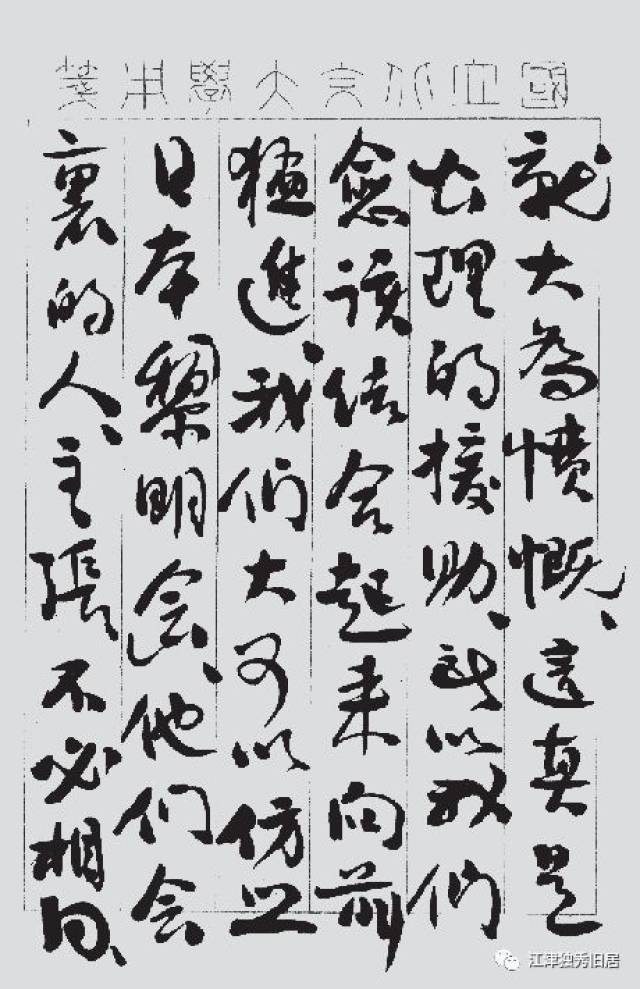 國立北京大學用箋
就大為憤慨、這真是
理的援助、所以我們
愈該結合起來向前
猛進、我們大可以仿照
日本黎明會、他們會
裏的人、主張不必相同、
江津独秀旧居